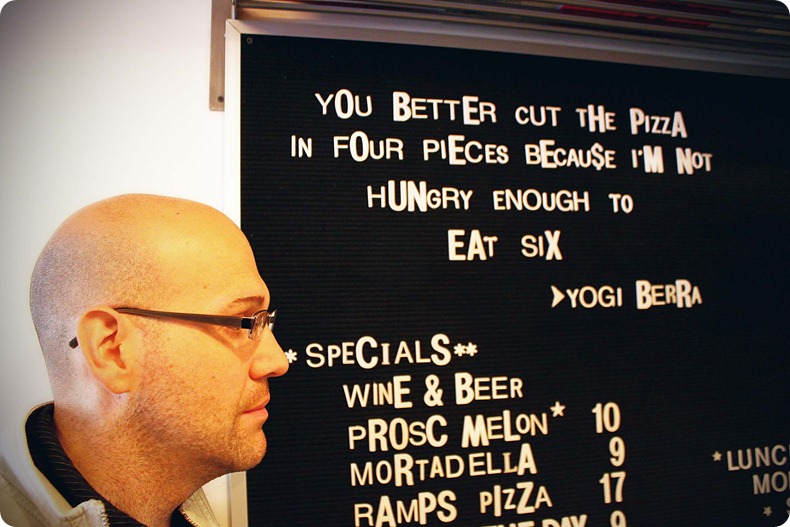 YOU BETTER CUT THE PIZZA
IN FOUR PIECES BECAU$E I'M NOT
HUNGRY ENOUGH TO
EAT SIX
>YOGI BERRA
*SPECIALS**
WINE & BEER
PROSC MELON* 10
MORTADELLA 9
RAMPS PIZZA 17
THE DAY 9
*LUNC
MO
*